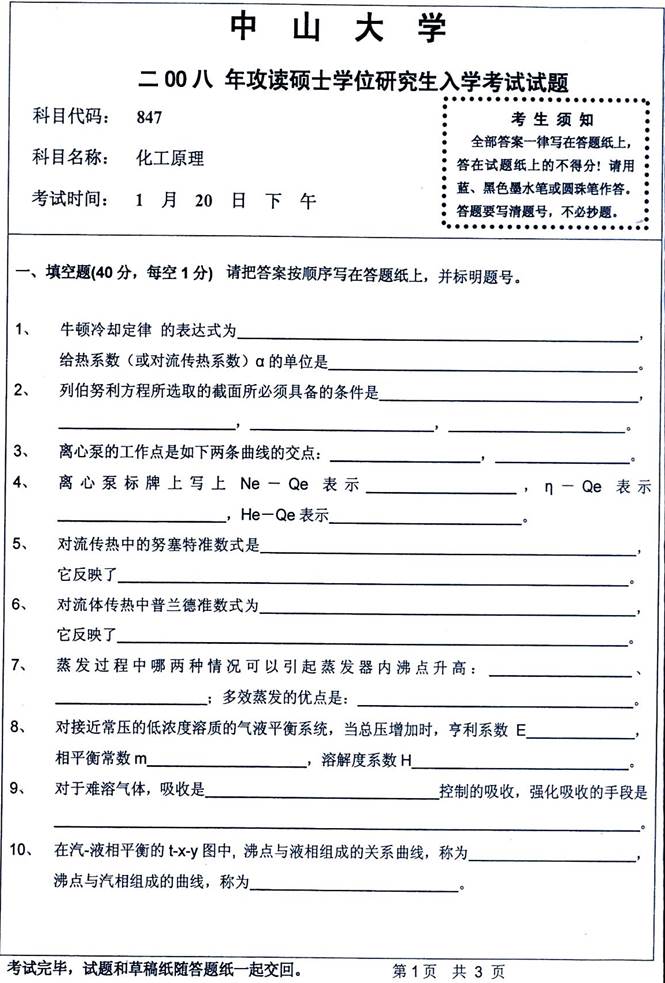 中 山 大 学
二00八 年攻读硕士学位研究生入学考试试题
科目代码： 847
科目名称： 化工原理
考试时间： 1 月 20 日 下 午
考 生 须 知
全部答案一律写在答题纸上，
答在试题纸上的不得分！请用
蓝、黑色墨水笔或圆珠笔作答。
答题要写清题号，不必抄题。
一、填空题(40分，每空1分) 请把答案按顺序写在答题纸上，并标明题号。
1、 牛顿冷却定律 的表达式为____，
给热系数（或对流传热系数）α的单位是____。
2、 列伯努利方程所选取的截面所必须具备的条件是____，
____，____，____。
3、 离心泵的工作点是如下两条曲线的交点：____，____。
4、 离心泵标牌上写上 Ne－Qe 表示____，η－Qe 表示
____，He－Qe表示____。
5、 对流传热中的努塞特准数式是____，
它反映了____。
6、 对流体传热中普兰德准数式为____，
它反映了____。
7、 蒸发过程中哪两种情况可以引起蒸发器内沸点升高：____、
____；多效蒸发的优点是：____。
8、 对接近常压的低浓度溶质的气液平衡系统，当总压增加时，亨利系数 E____，
相平衡常数m____，溶解度系数H____。
9、 对于难溶气体，吸收是____控制的吸收，强化吸收的手段是
____。
10、 在汽-液相平衡的t-x-y图中，沸点与液相组成的关系曲线，称为____，
沸点与汽相组成的曲线，称为____。
考试完毕，试题和草稿纸随答题纸一起交回。 第1页 共 3 页